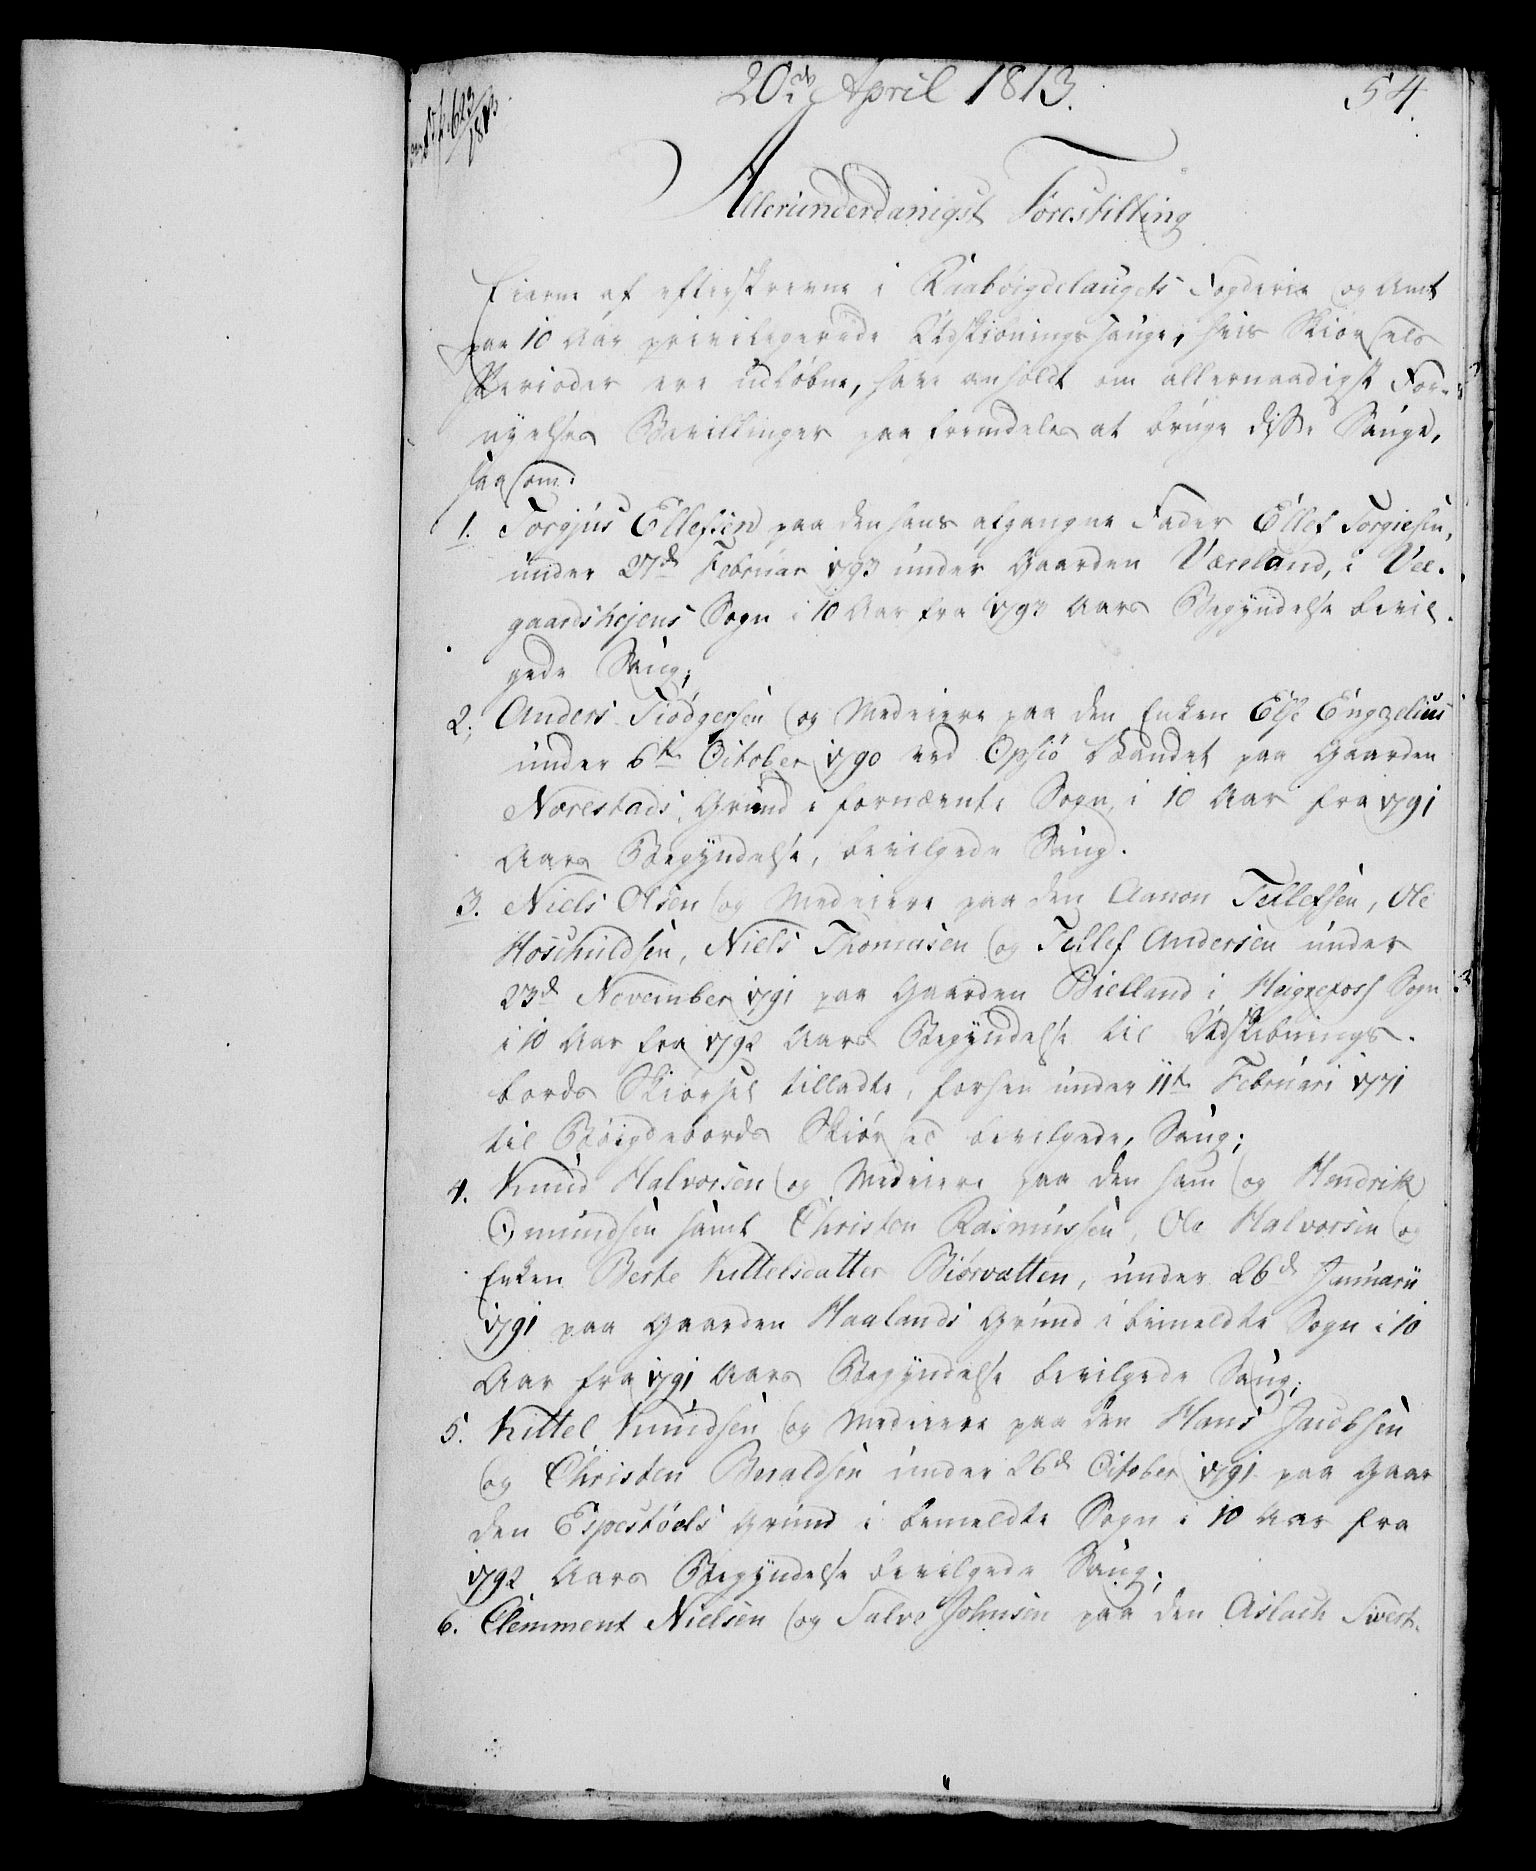 20de April 1813.
54.
623/1813
Allerunderdanigst Forestilling
Eierne af efterskrevne i Raabøigdelaugets Fogderie og Amt
paa 10 Aar privilegerede Udskibnings Sauge, hvis Skiørsels
Perioder ere udløbne, have anholdt om allernaadigst For-
nyelses Bevillinger paa fremdeles at bruge disse Sauge,
saasom:
1. Torgjus Ellefsen paa den hans afgangne Fader Ellef Torgiesen,
under 27de Februar 1793 under Gaarden Værsland, i Vee-
gaardshejens Sogn i 10 Aar fra 1793 Aars Begyndelse bevil-
gede Saug;
2. Anders Siødgersen og Medeiere paa den Enken Else Engzelius
under 6te October 1790 ved Opsiø Vandet paa Gaarden
Norestads Grund i fornævnte Sogn, i 10 Aar fra 1791
Aars Begyndelse, bevilgede Saug.
3. Niels Olsen og Medeiere paa den Aanon Tellefsen, Ole
Hoschuldsen, Niels Thomasen og Tellef Andersen under
23de November 1791 paa Gaarden Bielland i Heigrefoss Sogn
i 10 Aar fra 1792 Aars Begyndelse til Udskibnings-
bords Skiørsel tilladte, forhen under 11te Februari 1771
til Bøigdebords Skiørsel bevilgede, Saug;
4. Knud Halvorsen og Medeiere paa den ham og Hendrik
Omundsen samt Christen Rasmussen, Ole Halvorsen og
Enken Berte Kittelsdatter Biørvatten, under 26de Januarii
1791 paa Gaarden Haalands Grund i bemeldte Sogn i 10
Aar fra 1791 Aars Begyndelse bevilgede Saug;
5. Kittel Knudsen og Medeiere paa den Hans Jacobsen
og Christen Beraldsen under 26de October 1791 paa Gaar
den Espestøels Grund i bemeldte Sogn i 10 Aar fra
1792 Aars Begyndelse bevilgede Saug;
6. Clemment Nielsen og Salve Johnsen paa den Aslach Sivert-